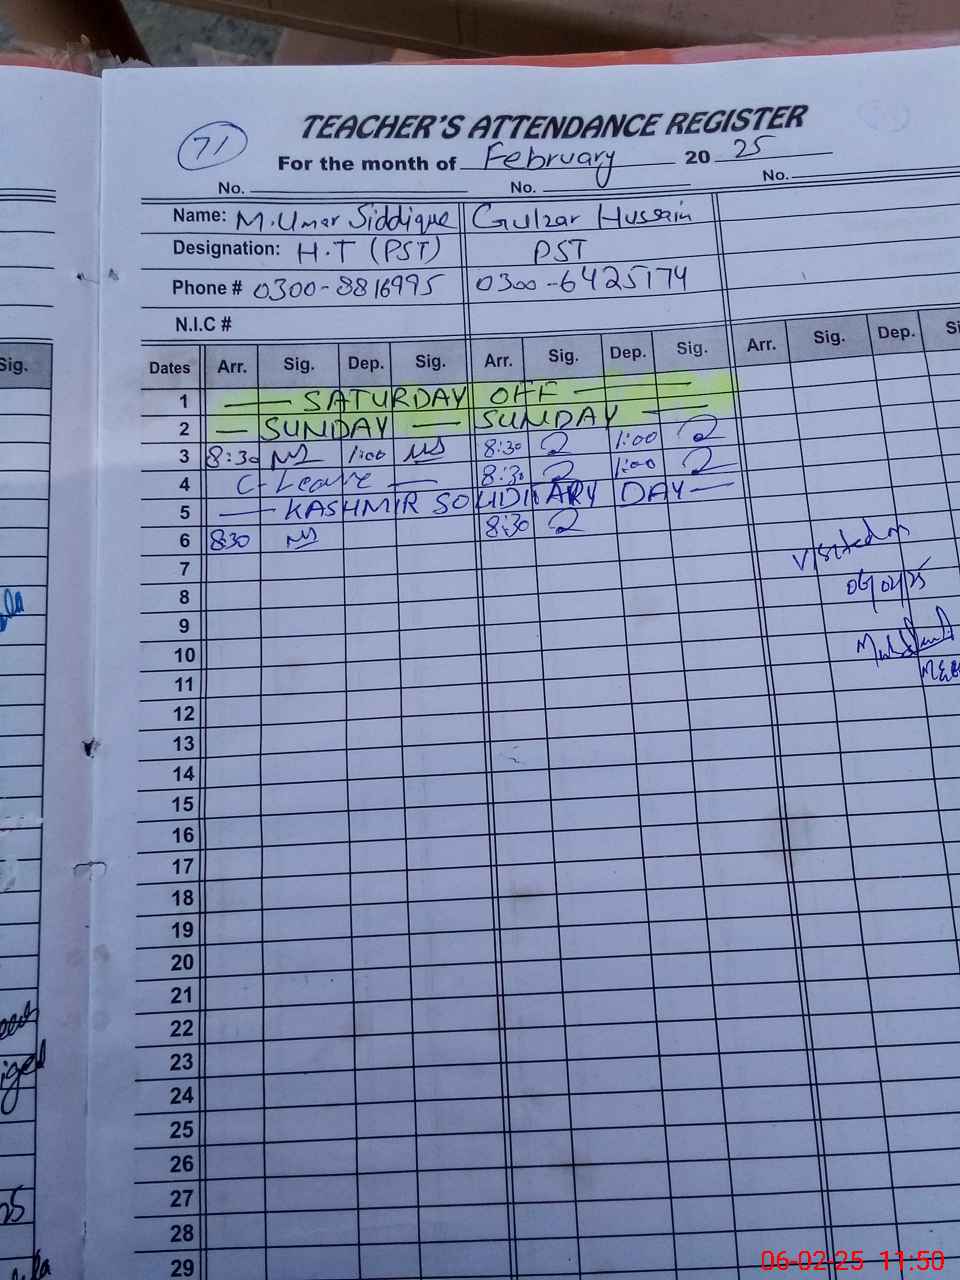 71
TEACHER'S ATTENDANCE REGISTER
For the month of February 20 25
No. No. No.
Name: M. Umar Siddique Gulzar Hussain
Designation: H.T (PST) PST
Phone # 0300-8816995 0300-6425174
N.I.C #
Sig.
Dates Arr. Sig. Dep. Sig. Arr. Sig. Dep. Sig. Arr. Sig. Dep.
1 — SATURDAY OFF —
2 — SUNDAY — SUNDAY —
3 8:30 1:00 8:30 1:00
4 C-Leave — 8:30 1:00
5 — KASHMIR SOLIDITARY DAY —
6 8:30 8:30
7
Visited on
8
06/02/25
9
10
11
12
13
14
15
16
17
18
19
20
21
22
23
24
25
26
27
28
29
06-02-25 11:50